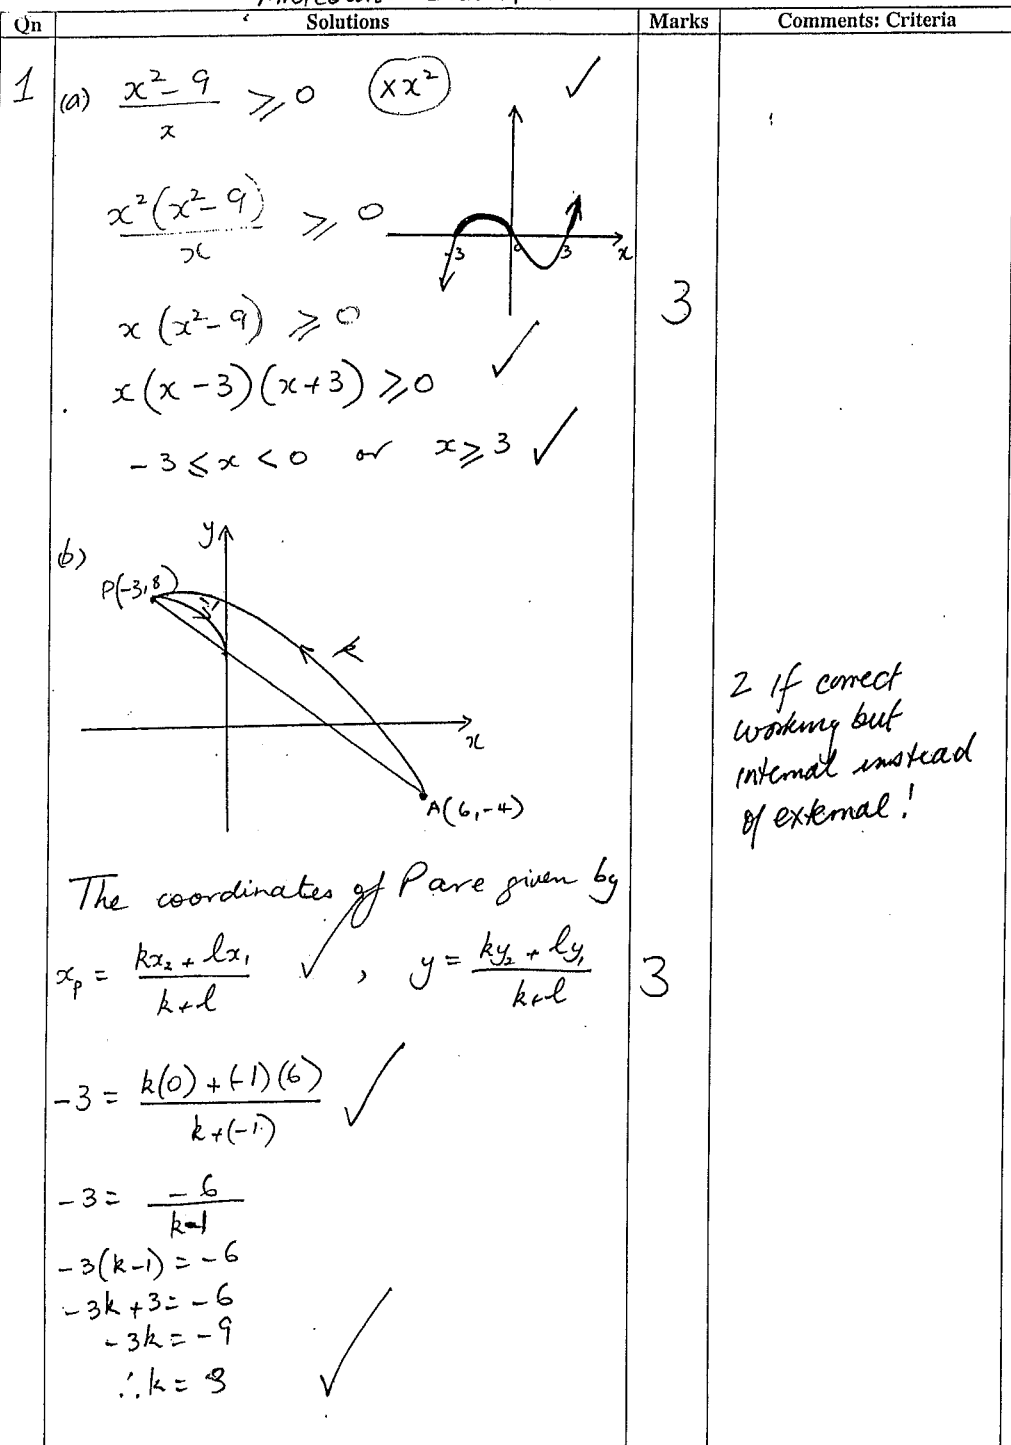 Qn Solutions Marks Comments: Criteria
1 (a) x² - 9 / x ⩾ 0 (× x²) ✓
x²(x² - 9) / x ⩾ 0
-3 0 3 x
x(x² - 9) ⩾ 0
3
x(x - 3)(x + 3) ⩾ 0 ✓
-3 ⩽ x < 0 or x ⩾ 3 ✓
b)
y
P(-3,8)
k
x
A(6,-4)
2 if correct
working but
internal instead
of external!
The coordinates of P are given by
x_p = kx₂ + lx₁ / k + l ✓ , y = ky₂ + ly₁ / k + l
3
-3 = k(0) + (-1)(6) / k + (-1) ✓
-3 = -6 / k - 1
-3(k-1) = -6
-3k + 3 = -6
-3k = -9
∴ k = 3 ✓